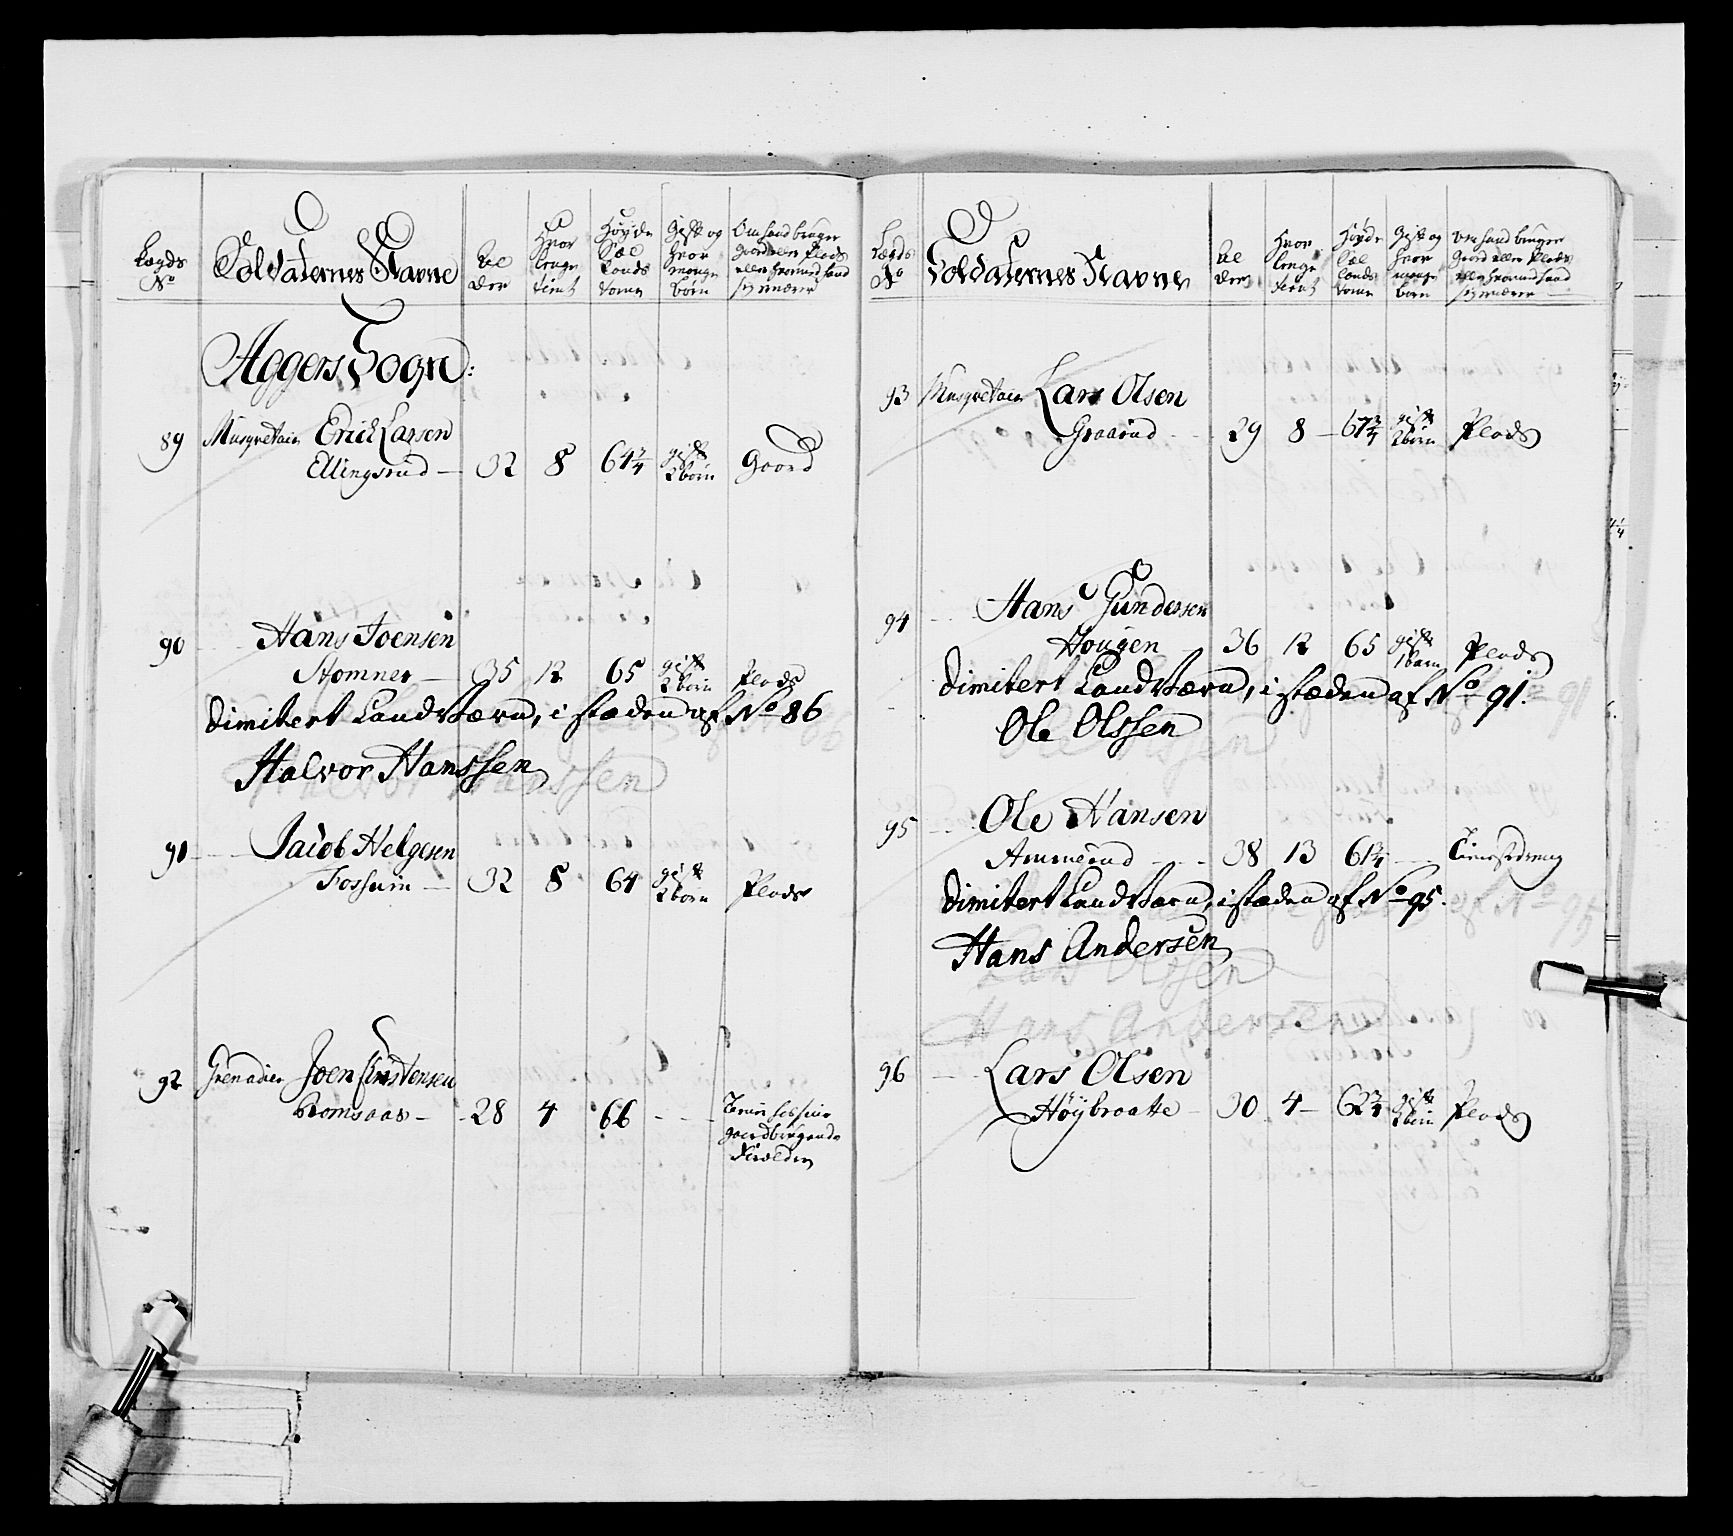 Lægds No
Soldaternes Navne
Al der
Hvor lenge tient
Høyde Sæl lands Tomr
Gift og hvor mange børn
Om hand bruger Gaard eller Plads eller hvormed hand sig nærer
Aggers Sogn:
89 Musqvetair Erich Larsen
Ellingsrud 32 8 64 3/4 gift 2 børn Gaard
90 Hans Joensen
Stomner 35 12 65 gift 2 børn Plads
Dimitert Landværn, i stæden af No 86
Halvor Hanssen
91 Jacob Helgesen
Fossum 32 8 64 gift 2 børn Plads
92 Grenadier Joen Christensen
Romsaas 28 4 66
gaardbrugende
Forældre
Lægds No
Soldaternes Navne
Al der
Hvor lenge tient
Høyde Sæl lands Tomr
Gift og hvor mange børn
Om hand bruger Gaard eller Plads eller hvormed hand sig nærer
93 Musqvetair Lars Olsen
Graarud 29 8 67 3/4 gift 2 børn Plads
94 Hans Gundersen
Hougen 36 12 65 gift 1 barn Plads
Dimitert Landværn, i stæden af No 91.
Ole Olssen
95 Ole Hansen
Ammerud 38 13 61 3/4 Tienestdreng
Dimitert Landværn, i stæden af No 95.
Hans Andersen
96 Lars Olsen
Høybraatte 30 4 62 3/4 gift 2 børn Plads